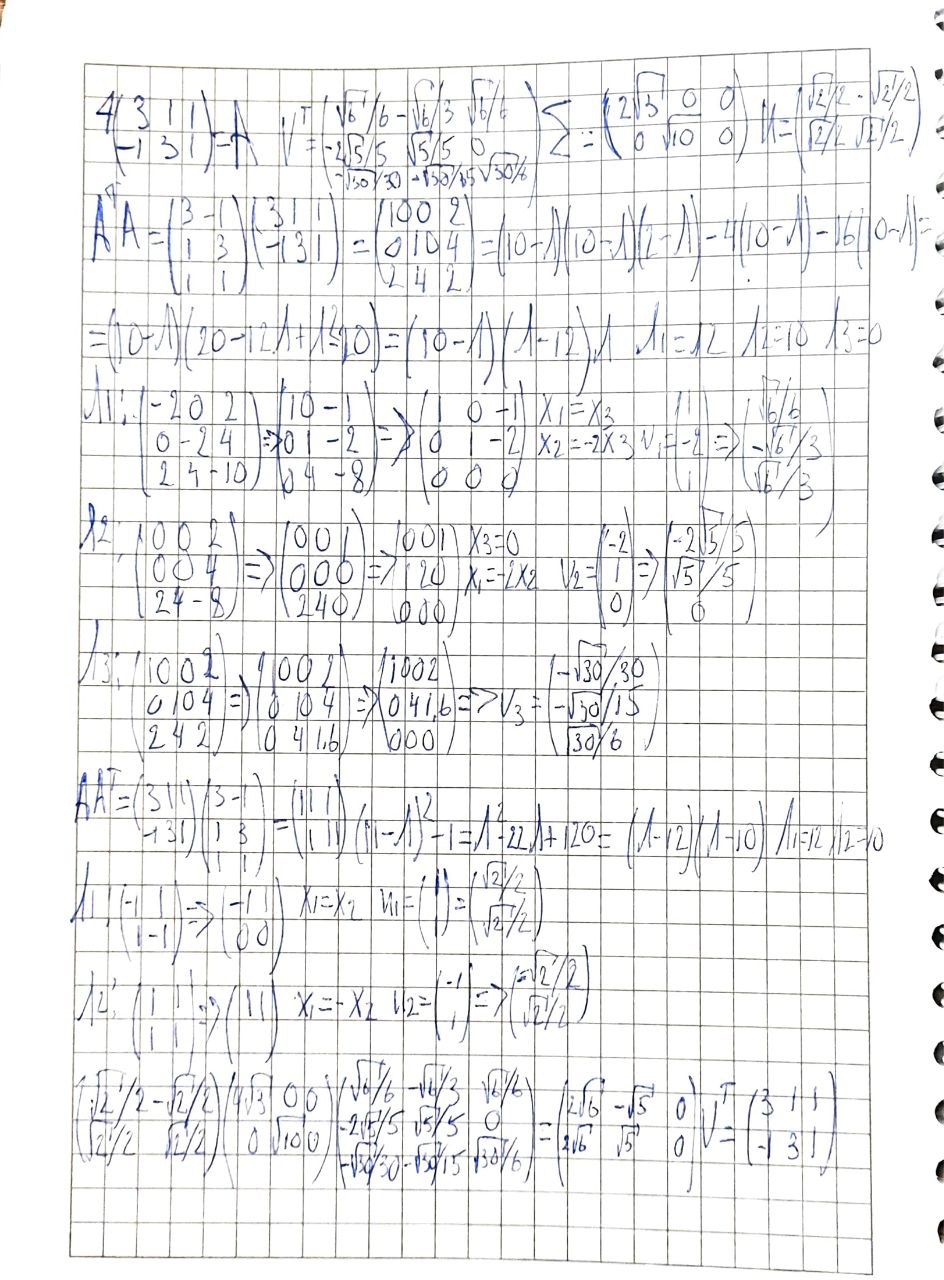 4 (3 1 1; -1 3 1) = A V^T = (√6/6 -√6/3 √6/6; -2√5/5 √5/5 0; -√30/30 -√30/15 √30/6) Σ = (2√3 0 0; 0 √10 0) U = (√2/2 -√2/2; √2/2 √2/2)
A^T A = (3 -1; 1 3; 1 1)(3 1 1; -1 3 1) = (10 0 2; 0 10 4; 2 4 2) = (10-λ)(10-λ)(2-λ)-4(10-λ)-16(10-λ)=
=(10-λ)(20-12λ+λ²-20)=(10-λ)(λ-12)λ λ1=12 λ2=10 λ3=0
λ1: (-2 0 2; 0 -2 4; 2 4 -10) => (1 0 -1; 0 1 -2; 0 4 -8) => (1 0 -1; 0 1 -2; 0 0 0) x1=x3 x2=-2x3 v1=(1; -2; 1) => (√6/6; -√6/3; √6/3)
λ2: (0 0 2; 0 0 4; 2 4 -8) => (0 0 1; 0 0 0; 2 4 0) => (0 0 1; 1 2 0; 0 0 0) x3=0 x1=-2x2 v2=(-2; 1; 0) => (-2√5/5; √5/5; 0)
λ3: (10 0 2; 0 10 4; 2 4 2) => (10 0 2; 0 10 4; 0 4 1,6) => (10 0 2; 0 4 1,6; 0 0 0) => v3 = (-√30/30; -√30/15; √30/6)
AA^T = (3 1 1; -1 3 1)(3 -1; 1 3; 1 1) = (11 1; 1 11) (11-λ)²-1=λ²-22λ+120=(λ-12)(λ-10) λ1=12 λ2=10
λ1: (-1 1; 1 -1) => (-1 1; 0 0) x1=x2 u1=(1; 1) = (√2/2; √2/2)
λ2: (1 1; 1 1) => (1 1) x1=-x2 u2=(-1; 1) => (-√2/2; √2/2)
(√2/2 -√2/2; √2/2 √2/2)(4√3 0 0; 0 √10 0)(√6/6 -√6/3 √6/6; -2√5/5 √5/5 0; -√30/30 -√30/15 √30/6) = (2√6 -√5 0; 2√6 √5 0) V^T = (3 1 1; -1 3 1)